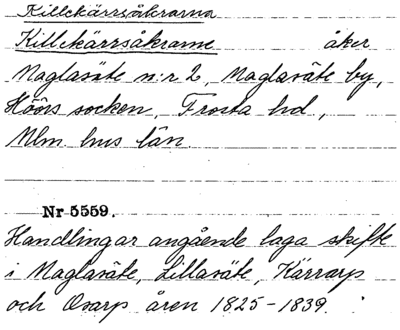 Killekärrsåkrarna
Killekärrsåkrarne åker
Maglasäte n:r 2, Maglasäte by,
Höörs socken, Frosta hd,
Mlm. hus län.
Nr 5559.
Handlingar angående laga skifte
i Maglasäte, Lillasäte, Kärrarp
och Oxarp åren 1825-1839.